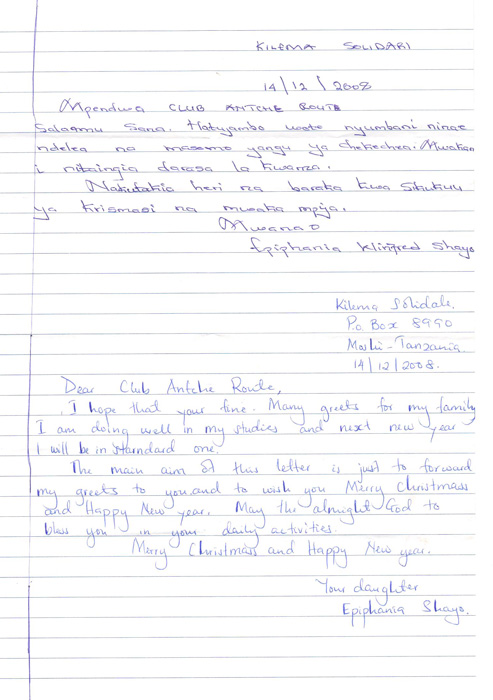 KILEMA SOLIDARI
14/12/2008
Mpendwa CLUB ANTCHE ROUTE
Salaamu Sana. Hatujambo wote nyumbani ninae
ndelea na masomo yangu ya chekechea. Mwakan
i nitaingia darasa la kwanza.
Nakutakia heri na baraka kwa Sikukuu
ya krismasi na mwaka mpya.
Mwanao
Epiphania Klinfred Shayo
Kilema Solidale,
P.o Box 8990
Moshi - Tanzania.
14/12/2008.
Dear Club Antche Route,
I hope that your fine. Many greets for my family
I am doing well in my studies and next new year
I will be in standard one.
The main aim of this letter is just to forward
my greets to you and to wish you Merry Christmass
and Happy New year. May the almight God to
bless you in your daily activities.
Merry Christmass and Happy New year.
Your daughter
Epiphania Shayo.